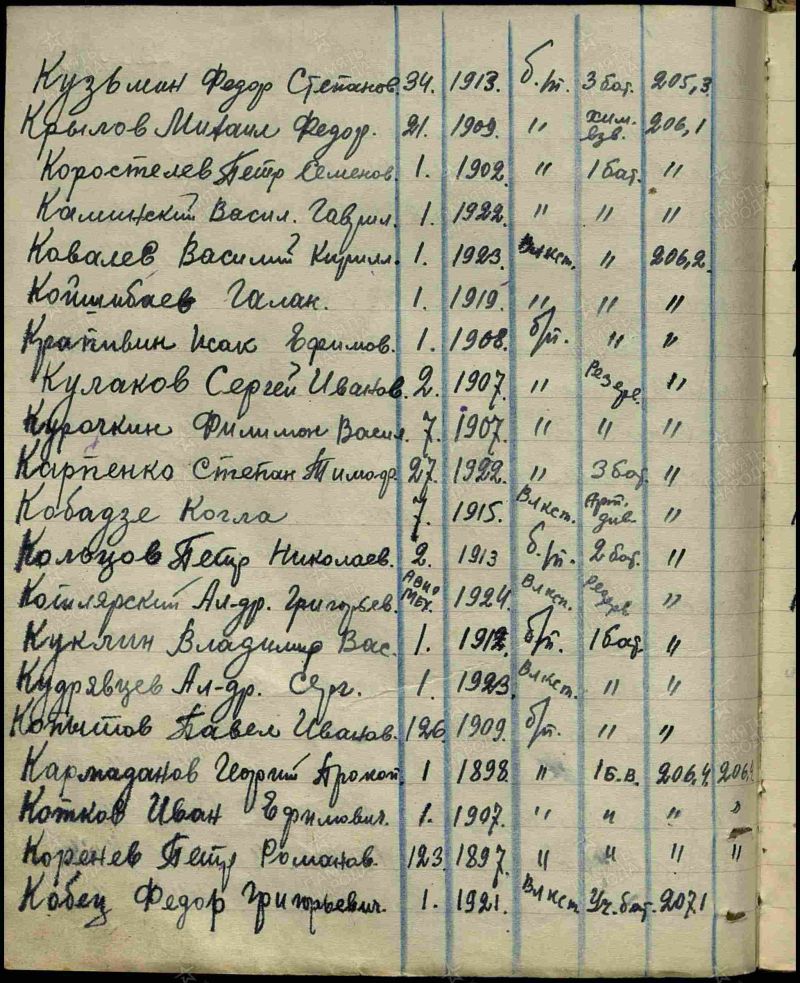 Кузьмин Федор Степанов. 34. 1913. б.п. 3 бат. 205,3
Крылов Михаил Федор. 21. 1909. " хим. взв. 206,1
Коростелев Петр Семенов. 1. 1902. " 1 бат. "
Каминский Васил. Гаврил. 1. 1922. " " "
Ковалев Василий Кирилл. 1. 1923. Влкст. " 206,2.
Койшибаев Галан. 1. 1919. " " "
Крапивин Исак Ефимов. 1. 1908. б/п. " "
Кулаков Сергей Иванов. 2. 1907. " Резерв. "
Курочкин Филимон Васил. 7. 1907. " " "
Карпенко Степан Тимо-др. 27. 1922. " 3 бат. "
Кобадзе Когла 7. 1915. Влкст. Арт. див. "
Кольцов Петр Николаев. 2. 1913 б.п. 2 бат. "
Котлярский Ал-др. Григорьев. 1924. Влксп. "
Куклин Владимир Вас. 1. 1912. б/п. 1 бат. "
Кудрявцев Ал-др. Серг. 1. 1923. Влкст. " "
Копытов Павел Иванов. 126. 1909. б/п. " "
Кармаданов Георгий Прокоп. 1 1898. " 1 б.в. 206,4. 206,4
Котков Иван Ефимович. 1. 1907. " " " "
Коренев Петр Романов. 123. 1897. " " " "
Кобец Федор Григорьевич. 1. 1921. Влкст Уч. бат. 207.1